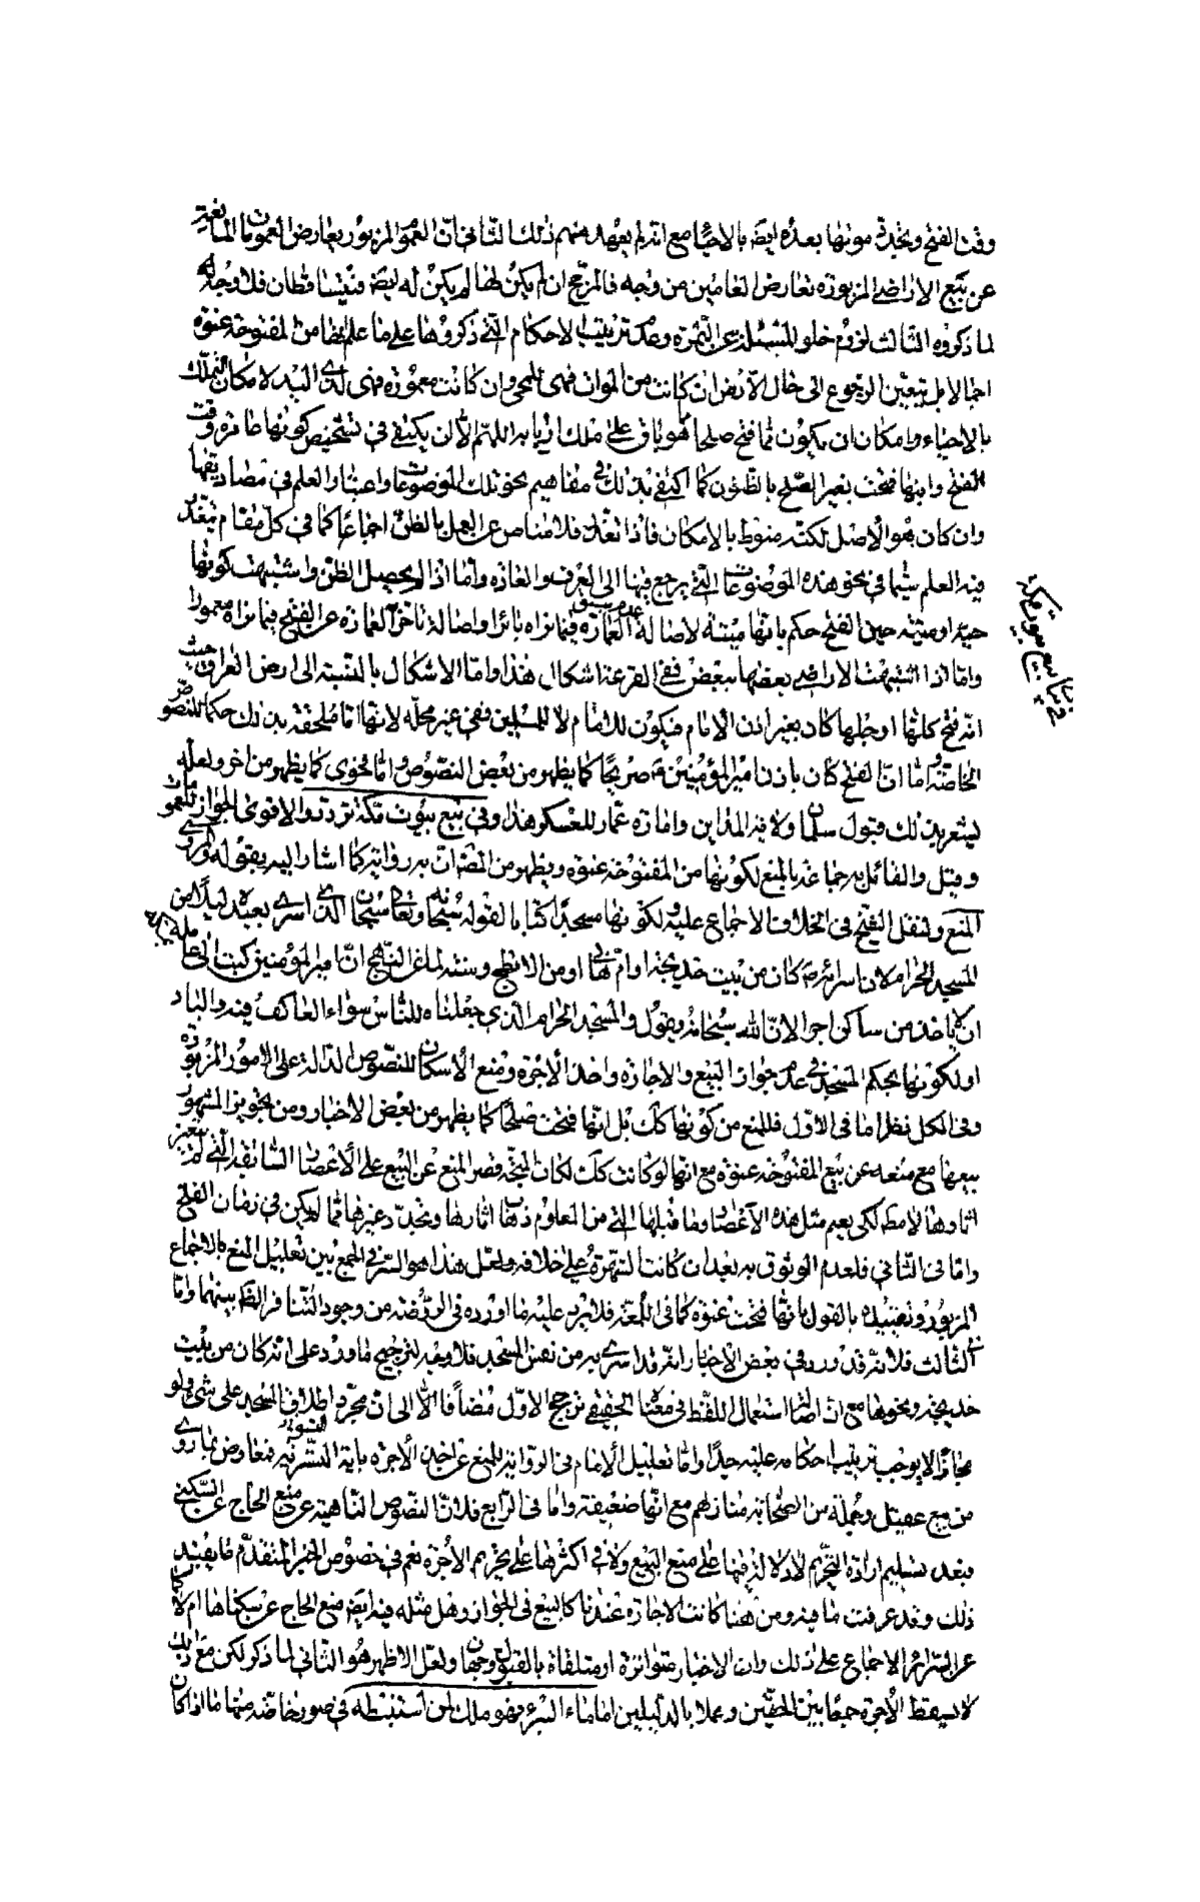 وقت الفتح وتجدد موتها بعده ايضا بالاحياء مع انه لم يعهد منهم ذلك الثاني ان العموم المزبور يعارض العمومات المانعة
عن بيع الاراضي المزبورة تعارض العامين من وجه فالمرجح ان لم يكن لها لم يكن له ايضا فيتساقطان فلا وجه
لما ذكروه الثالث لزوم خلو المسئلة عن الثمرة وعدم ترتيب الاحكام التي ذكروها على ما علم انها من المفتوحة عنوة
اجمالا بل يتعين الرجوع الى حال الارض ان كانت من الموات فهي للمحيي وان كانت معمورة فهي لذي اليد لامكان التملك
بالاحياء وامكان ان يكون مما فتح صلحا فهو باق على ملك اربابه اللهم الا ان يكتفى في تشخيص كونها عامرة وقت
الفتح وانها فتحت بغير الصلح بالظنون كما اكتفى بذلك في مفاهيم نحو تلك الموضوعات واعتبار العلم في مصاديقها
وان كان هو الاصل لكنه منوط بالامكان فاذا تعذر فلا مناص عن العمل بالظن اجماعا كما في كل مقام تعذر
فيه العلم سيما في نحو هذه الموضوعات التي يرجع فيها الى العرف والعادة واما اذا لم يحصل الظن واشتبهت كونها
حية او ميتة حين الفتح حكم بانها ميتة لاصالة عدم سبق العمارة فيما نراه بائرا واصالة تأخر العمارة عن الفتح فيما نراه معمورا
واما اذا اشتبهت الاراضي بعضها ببعض ففي القرعة اشكال هذا واما الاشكال بالنسبة الى ارض العراق حيث
انه فتح كلها او جلها كاد بغير اذن الامام فيكون للامام لا للمسلمين ففي غير محله لانها اما ملحقة بذلك حكما للنصوص
الخاصة او اما ان الفتح كان باذن امير المؤمنين ع صريحا كما يظهر من بعض النصوص واما فحوى كما يظهر من اخر ولعله
يشعر بذلك قبول سلمان ولاية المداين وامارة عمار للعسكر هذا وفي بيع بيوت مكة تردد والاقوى الجواز للعمومات
وقيل والقائل به جماعة بالمنع لكونها من المفتوحة عنوة ويظهر من المض ان به رواية كما اشار اليه بقوله والمروي
المنع ولنقل الشيخ في الخلاف الاجماع عليه او لكونها مسجدا كتابا لقوله سبحانه وتعالى سبحان الذي اسرى بعبده ليلا من
المسجد الحرام لان اسرائه ص كان من بيت خديجة او ام هاني او من الابطح وسنة لما عن النهج ان امير المؤمنين كتب الى عامله بمكة
ان لا ياخذ من ساكن اجرا لان الله سبحانه يقول والمسجد الحرام الذي جعلناه للناس سواء العاكف فيه والباد
او لكونها بحكم المسجد في عدم جواز البيع والاجارة واخذ الاجرة ومنع الاسكان للنصوص الدالة على الامور المزبورة
وفي الكل نظر اما في الاول فللمنع من كونها كك بل انها فتحت صلحا كما يظهر من بعض الاخبار ومن تجويز المشهور
بيعها مع منعه عن بيع المفتوحة عنوة مع انها لو كانت كك لكان المتجه قصر المنع عن البيع على الاعصار السابقة التي لم يتغير
اثارها لا مط لكي يعم مثل هذه الاعصار وما قبلها التي من المعلوم ذهاب اثارها وتجدد غيرها مما لم يكن في زمان الفتح
واما في الثاني فلعدم الوثوق به بعد ان كانت الشهرة على خلافه ولعل هذا هو السر في الجمع بين تعليل المنع بالاجماع
المزبور وتعقيبه بالقول بانها فتحت عنوة كما في اللمعة فلا يرد عليه ما اورده في الروضة من وجود التنافر الظ بينهما واما
في الثالث فلانه قد ورد في بعض الاخبار انه قد اسري به من نفس المسجد فلا وجه لترجيح ما ورد على انه كان من بيت
خديجة ونحوها مع ان اصالة استعمال اللفظ في معناه الحقيقي ترجح الاول مضافا الى ان مجرد اطلاق المسجد على شيء ولو
مجازا لا يوجب ترتيب احكامه عليه جدا واما تعليل الامام في الرواية للمنع عن اخذ الاجرة باية التسوية الشريفة فمعارض بما روي
من بيع عقيل وجملة من الصحابة منازلهم مع انها ضعيفة واما في الرابع فلان النصوص الناهية عن منع الحاج عن السكنى
فبعد تسليم ارادة التحريم لا دلالة فيها على منع البيع ولا في اكثرها على تحريم الاجرة نعم في خصوص الخبر المتقدم ما يفيد
ذلك وقد عرفت ما فيه ومن هنا كانت الاجارة عندنا كالبيع في الجواز وهل مثله فيه ايضا منع الحاج عن سكناها ام لا
عن السرائر الاجماع على ذلك وان الاخبار متواترة او متلقاة بالقبول وجهان ولعل الاظهر هو الثاني لما ذكر لكن مع ذلك
لا يسقط الاجرة جمعا بين الحقين وعملا بالدليلين اما ماء البئر فهو ملك لمن استنبطه في صور خاصة منها ما اذا كان
في بيان بيع بيوت مكة